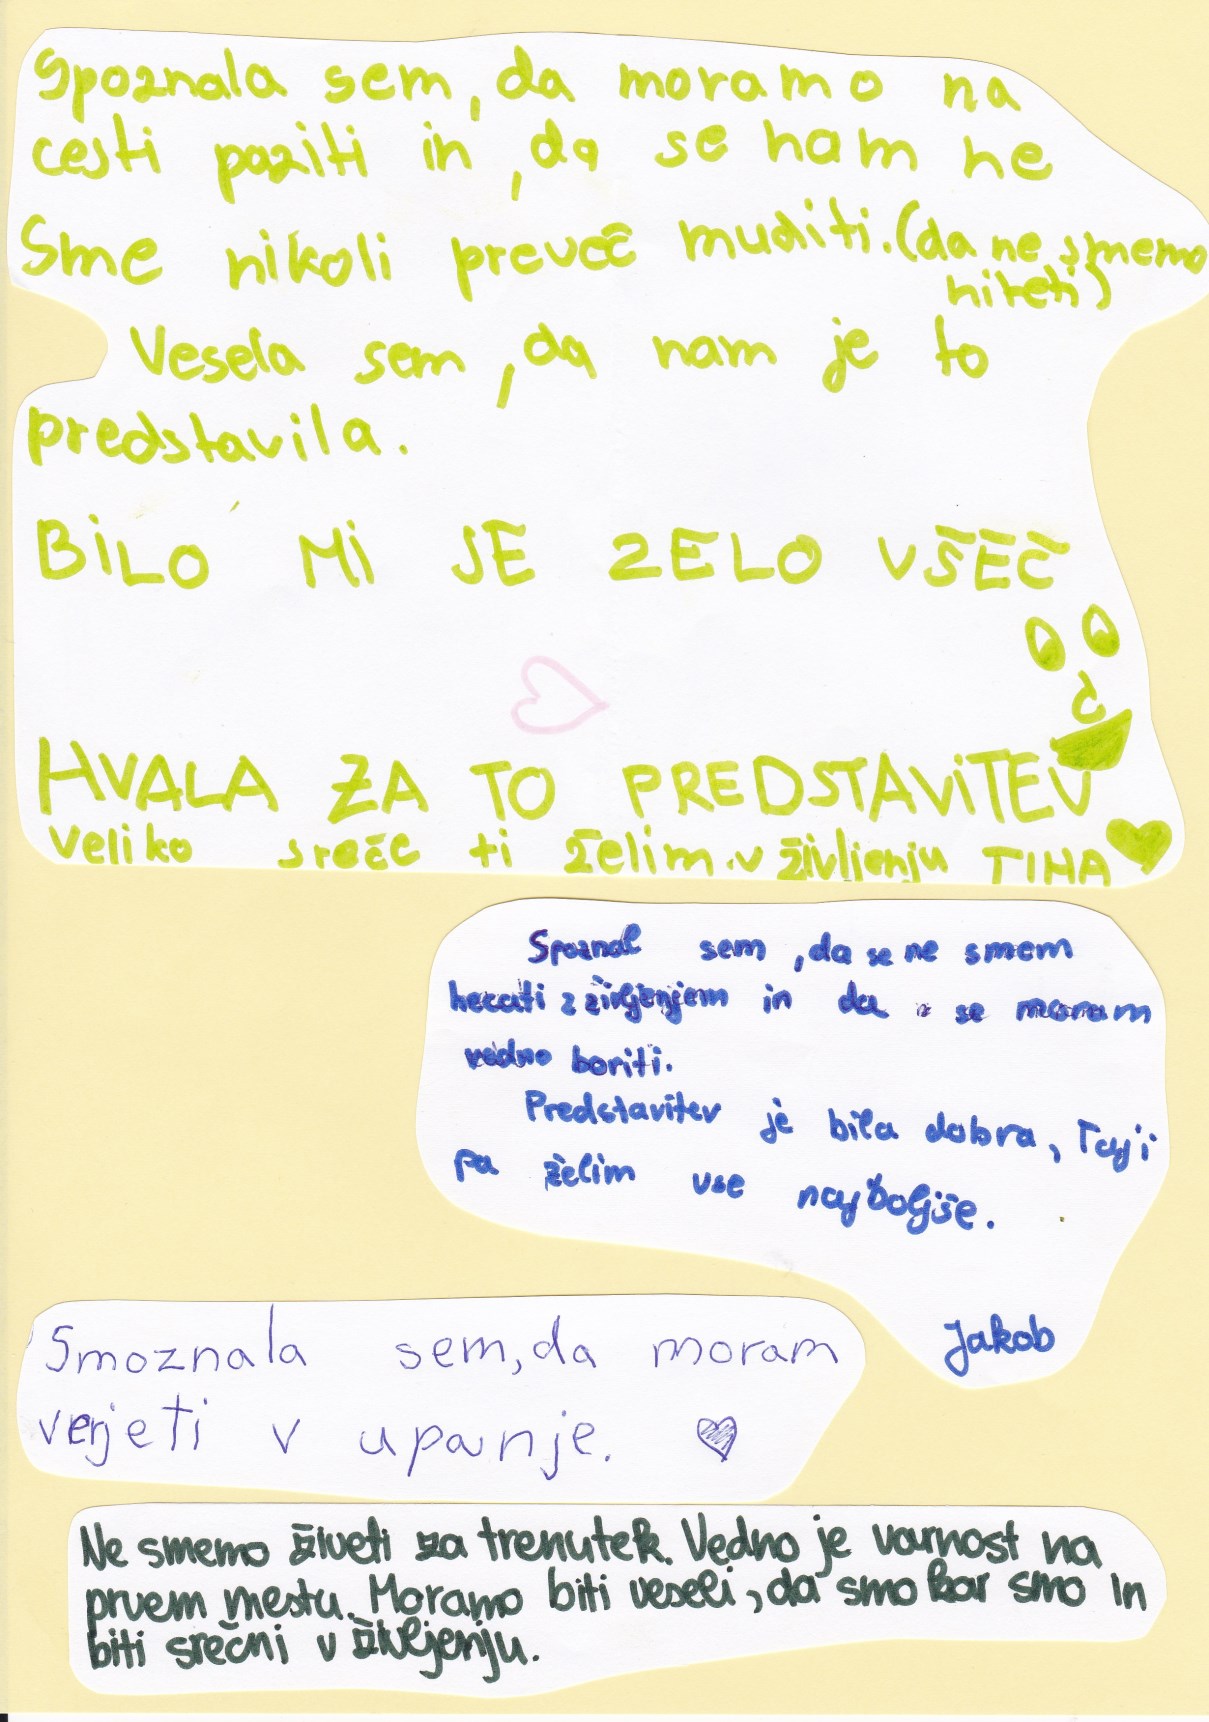 Spoznala sem, da moramo na
cesti paziti in, da se nam ne
sme nikoli preveč muditi. (da ne smemo
hiteti)
Vesela sem, da nam je to
predstavila.
BILO MI JE ZELO VŠEČ
HVALA ZA TO PREDSTAVITEV
Veliko sreče ti želim v življenju TIHA
Spoznal sem, da se ne smem
hecati z življenjem in da se moram
vedno boriti.
Predstavitev je bila dobra, Taji
pa želim vse najboljše.
Jakob
Smoznala sem, da moram
verjeti v upanje.
Ne smemo živeti za trenutek. Vedno je varnost na
prvem mestu. Moramo biti veseli, da smo kar smo in
biti srečni v življenju.